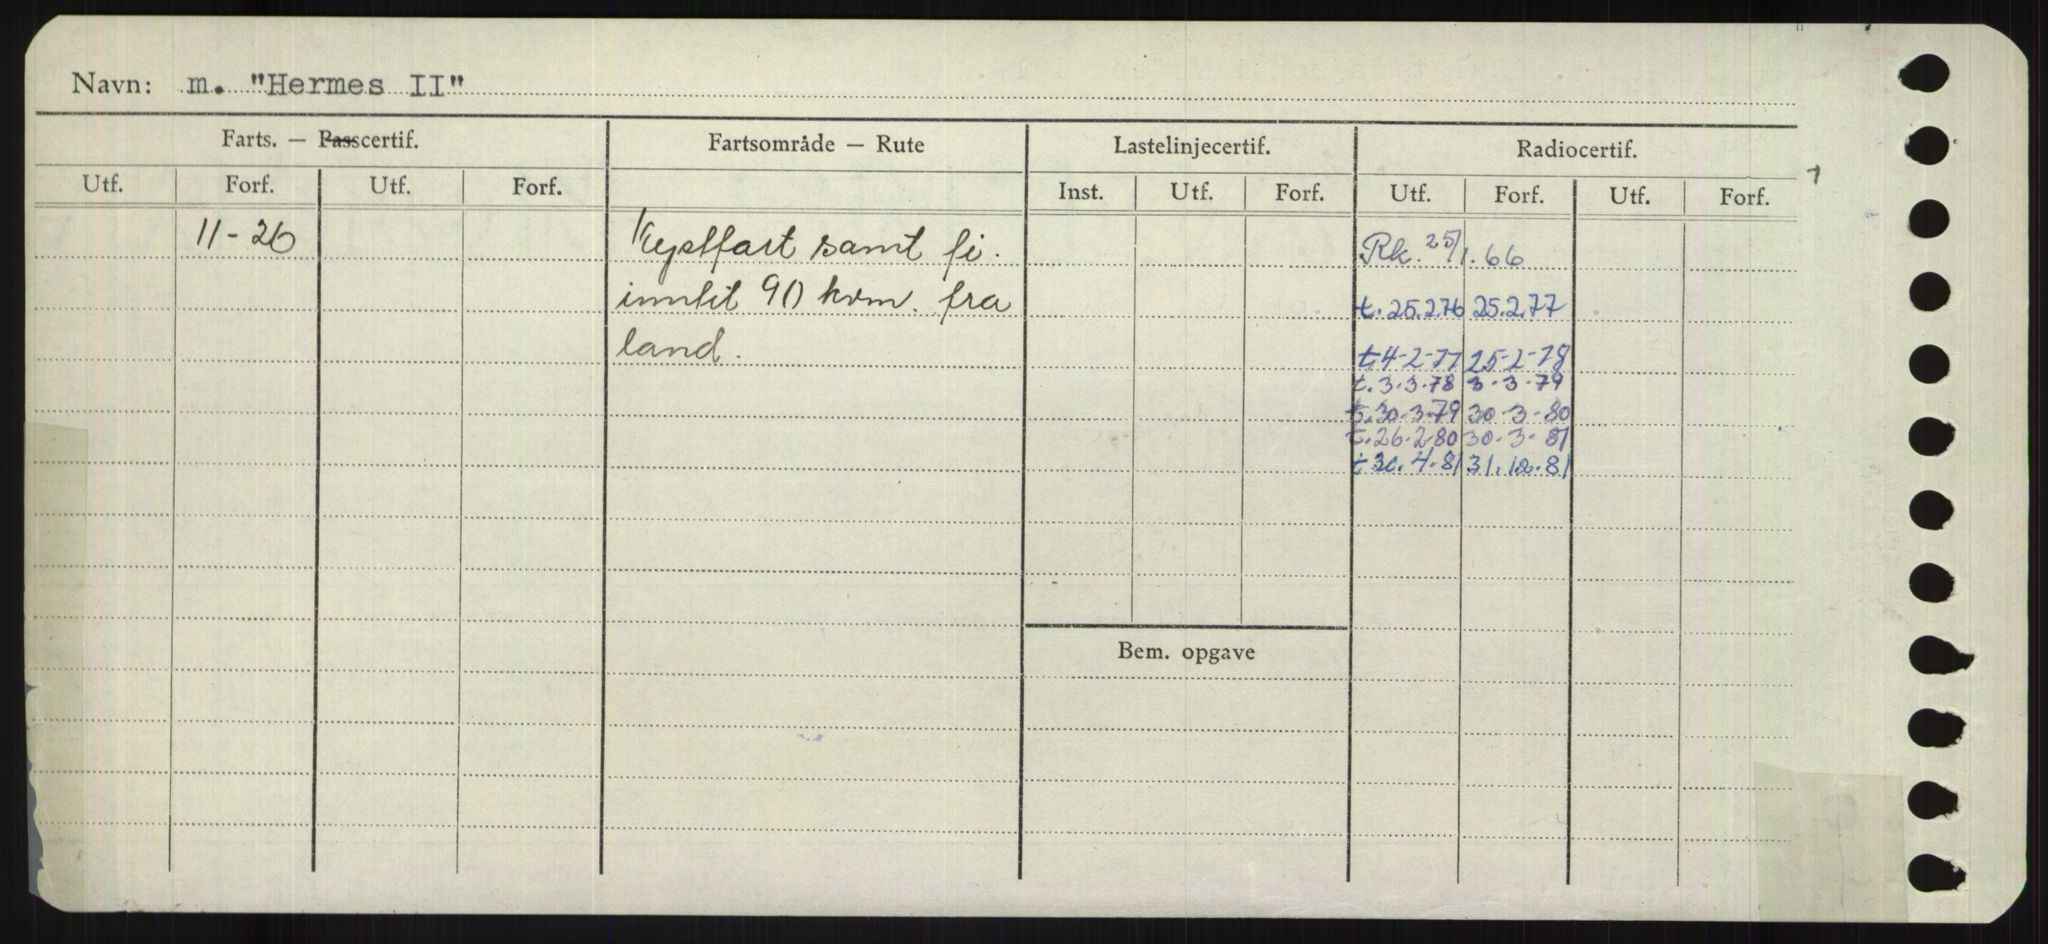 Navn: m. "Hermes II"
Farts. — Passcertif. Fartsområde — Rute Lastelinjecertif. Radiocertif.
Utf. Forf. Utf. Forf. Inst. Utf. Forf. Utf. Forf. Utf. Forf.
11-26 Kystfart samt fi. Rk. 25/1.66
inntil 90 kvm. fra t. 25.2.76 25.2.77
land. t. 4-2-77 25-2-78
t. 3.3.78 3.3.79
t. 30.3.79 30-3-80
t. 26.2.80 30.3.81
t 30.4.81 31.12.81
Bem. opgave